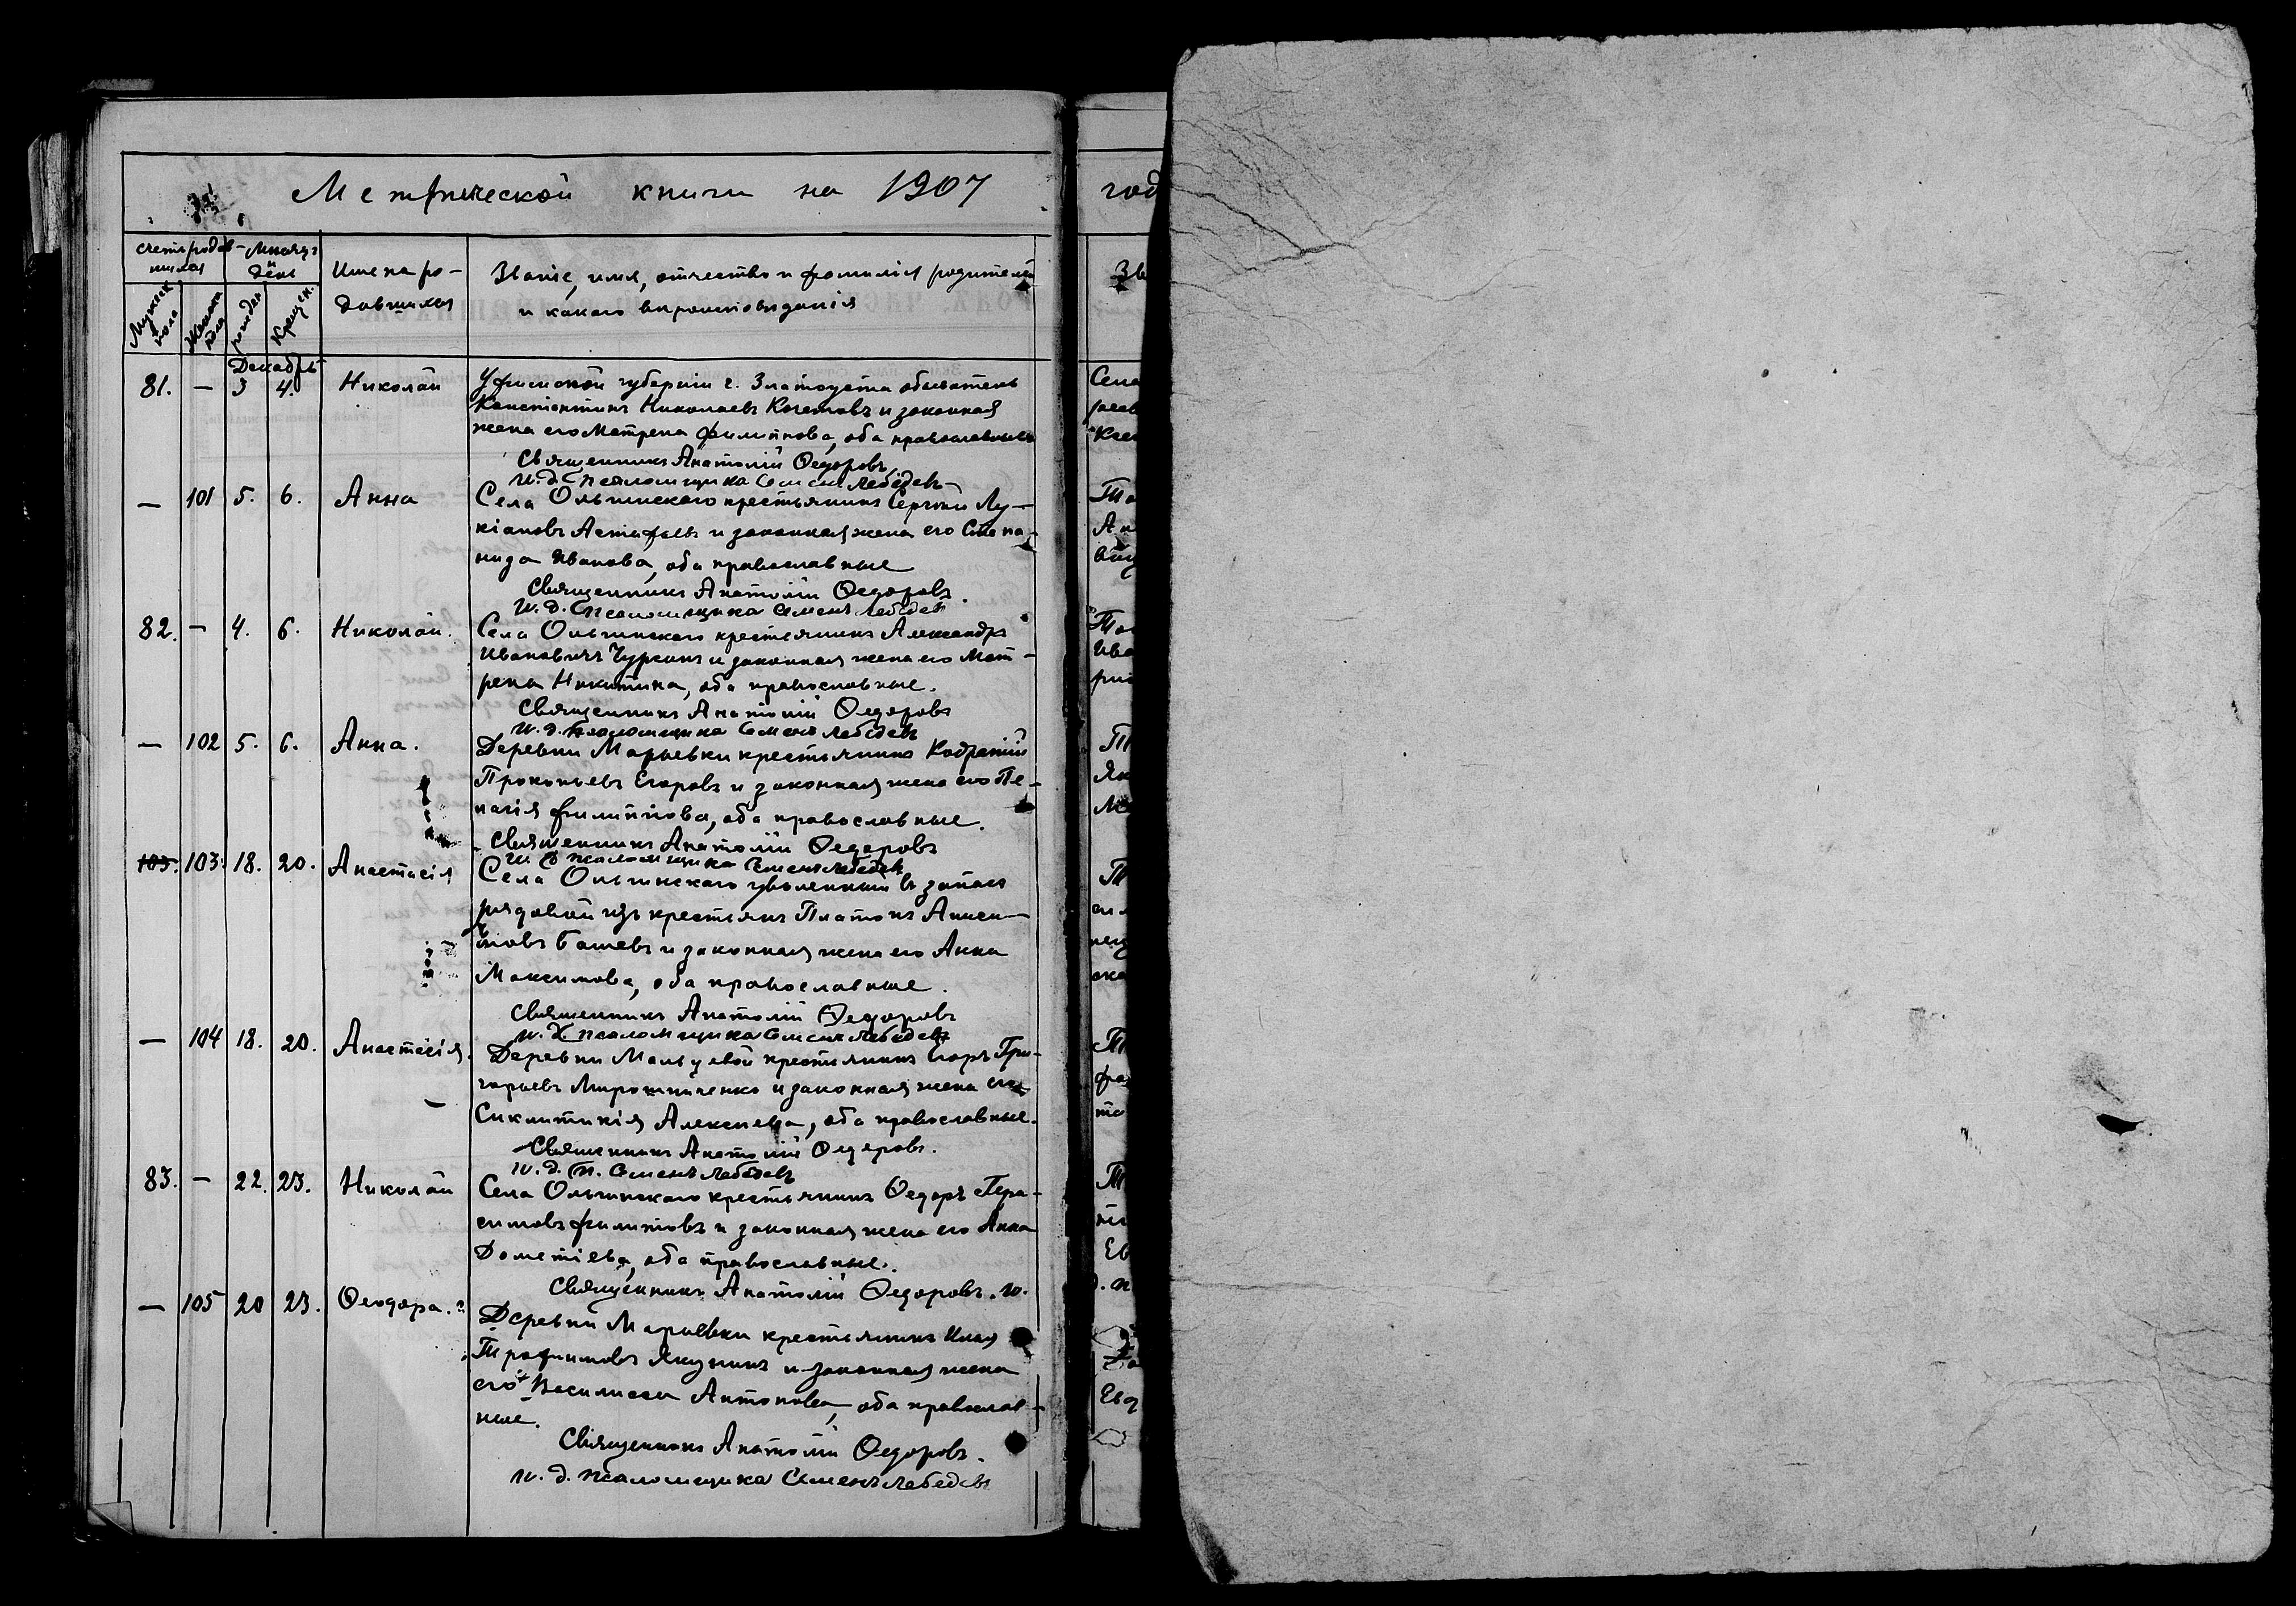 Метрической книги на 1907
счетъ родив-
шихся
Мѣсяцъ
и
день
Мужеск
пола
Женска
пола
рожден
Крещен.
Имена ро-
дившихся
Званіе, имя, отчество и фамилія родителей
и какого вѣроисповѣданія
Декабрь
81. — 3 4. Николай
Уфимской губерніи г. Златоуста обыватель
Константинъ Николаевъ Кочетовъ и законная
жена его Матрена Филиппова, оба православные
Священникъ Анатолій Ѳедоровъ
и.д. псаломщика Семенъ Лебедевъ
— 101 5. 6. Анна
Села Ольгинскаго крестьянинъ Сергѣй Лу-
кіановъ Астафьевъ и законная жена его Степа-
нида Иванова, оба православные
Священникъ Анатолій Ѳедоровъ.
И.д. псаломщика Семенъ Лебедевъ
82. — 4. 6. Николай.
Села Ольгинскаго крестьянинъ Александръ
Ивановичъ Чуркинъ и законная жена его Мат-
рена Никитина, оба православные.
Священникъ Анатолій Ѳедоровъ
И.д. псаломщика Семенъ Лебедевъ
— 102 5. 6. Анна.
Деревни Марьевки крестьянинъ Кодратій
Прокопьевъ Егоровъ и законная жена его Пе-
лагія Филиппова, оба православные.
Священникъ Анатолій Ѳедоровъ
И.д. псаломщика Семенъ Лебедевъ
103. 103. 18. 20. Анастасія
Села Ольгинскаго уволенный въ запасъ
рядовой изъ крестьянъ Платонъ
и законная жена его Анна
Максимова, оба православные.
Священникъ Анатолій Ѳедоровъ
и.д. псаломщика Семенъ Лебедевъ
— 104 18. 20. Анастасія.
Деревни Мальцевой крестьянинъ Егоръ Гри-
горьевъ Мирошниченко и законная жена его
Сиклитикія Алексѣева, оба православные.
Священникъ Анатолій Ѳедоровъ.
И.д. п. Семенъ Лебедевъ
83. — 22. 23. Николай
Села Ольгинскаго крестьянинъ Ѳедоръ Гера-
симовъ Филиповъ и законная жена его Анна
Дометіева, оба православные.
Священникъ Анатолій Ѳедоровъ. и.
— 105 20 23. Ѳеодора.
Деревни Марьевки крестьянинъ Илья
Трофимовъ Якунинъ и законная жена
его Василисса Антонова, оба православ-
ные.
Священникъ Анатолій Ѳедоровъ.
и.д. псаломщика Семенъ Лебедевъ
год